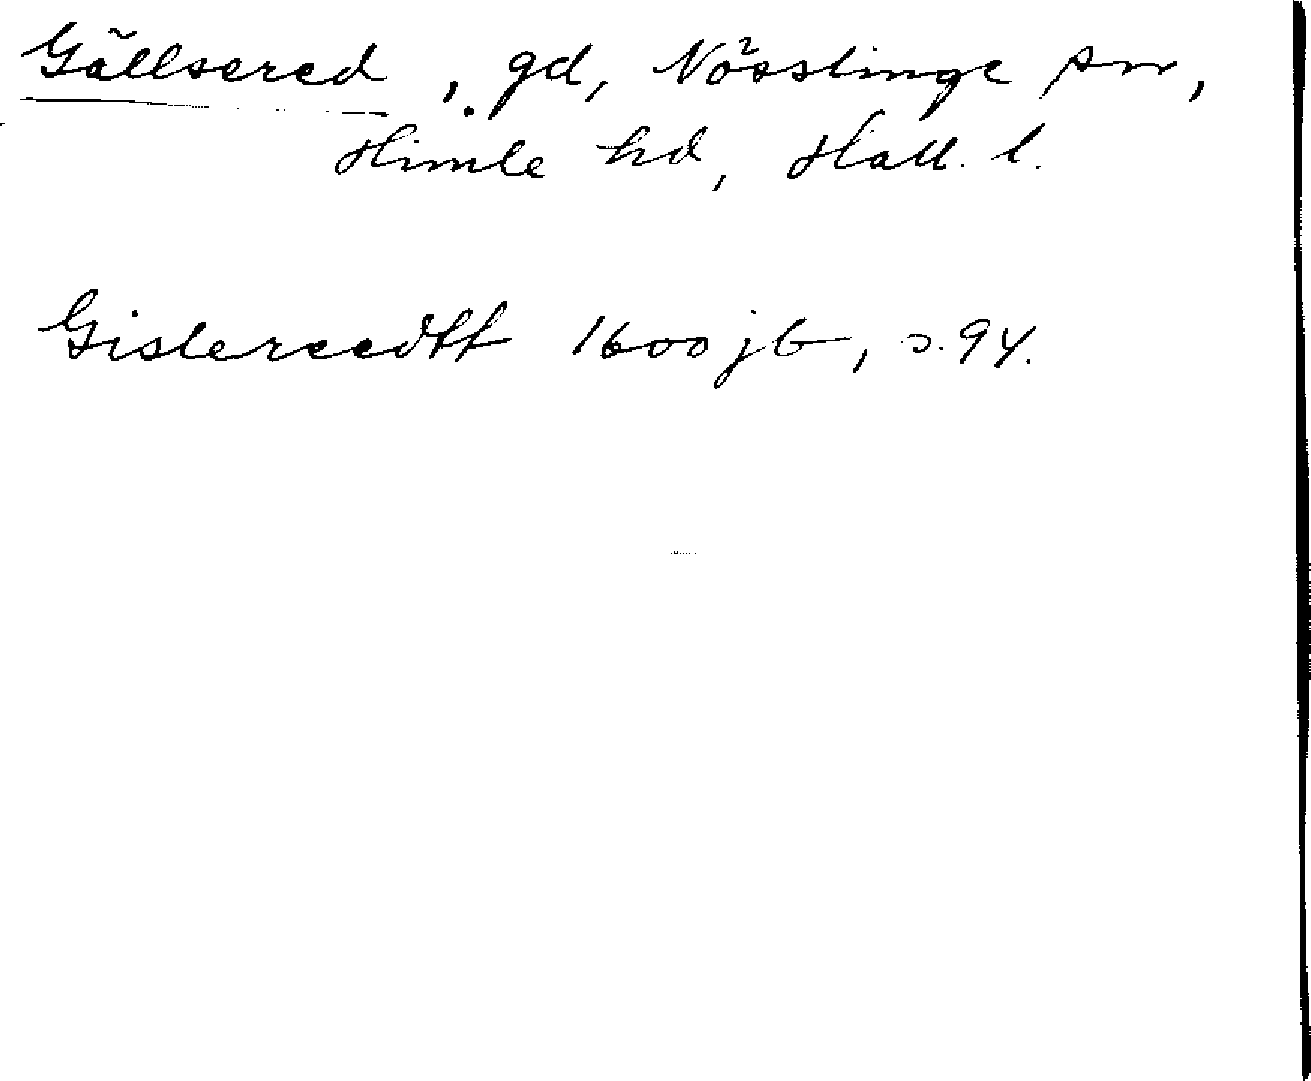 Gällsered, gd, Nösslinge sn,
Himle hd, Hall. l.
Gislereedtt 1600 jb, s. 94.